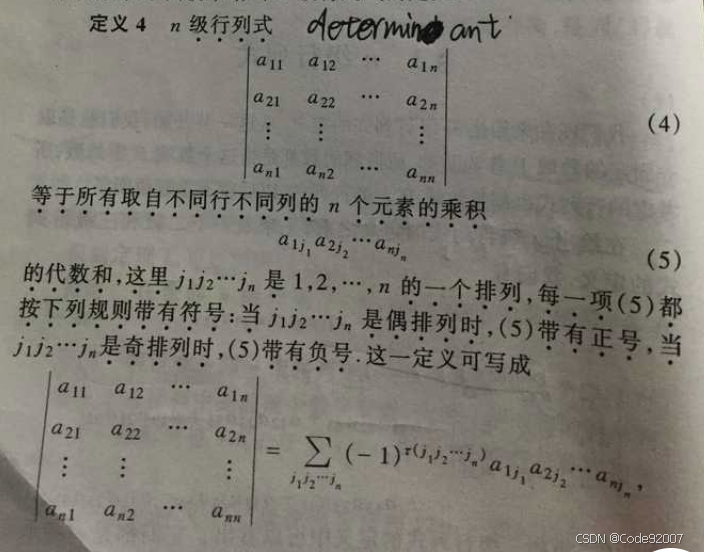 定义 4 n 级行列式 determinant
a11 a12 ⋯ a1n
a21 a22 ⋯ a2n
⋮ ⋮ ⋮
an1 an2 ⋯ ann
(4)
等于所有取自不同行不同列的 n 个元素的乘积
a1j1 a2j2 ⋯ anjn (5)
的代数和,这里 j1j2⋯jn 是 1,2,⋯,n 的一个排列,每一项(5)都
按下列规则带有符号:当 j1j2⋯jn 是偶排列时,(5)带有正号,当
j1j2⋯jn是奇排列时,(5)带有负号.这一定义可写成
a11 a12 ⋯ a1n
a21 a22 ⋯ a2n
⋮ ⋮ ⋮
an1 an2 ⋯ ann
= ∑ j1j2⋯jn (-1)^τ(j1j2⋯jn) a1j1 a2j2 ⋯ anjn,
CSDN @Code92007